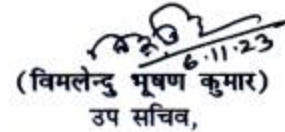 6.11.23
(विमलेन्दु भूषण कुमार)
उप सचिव,